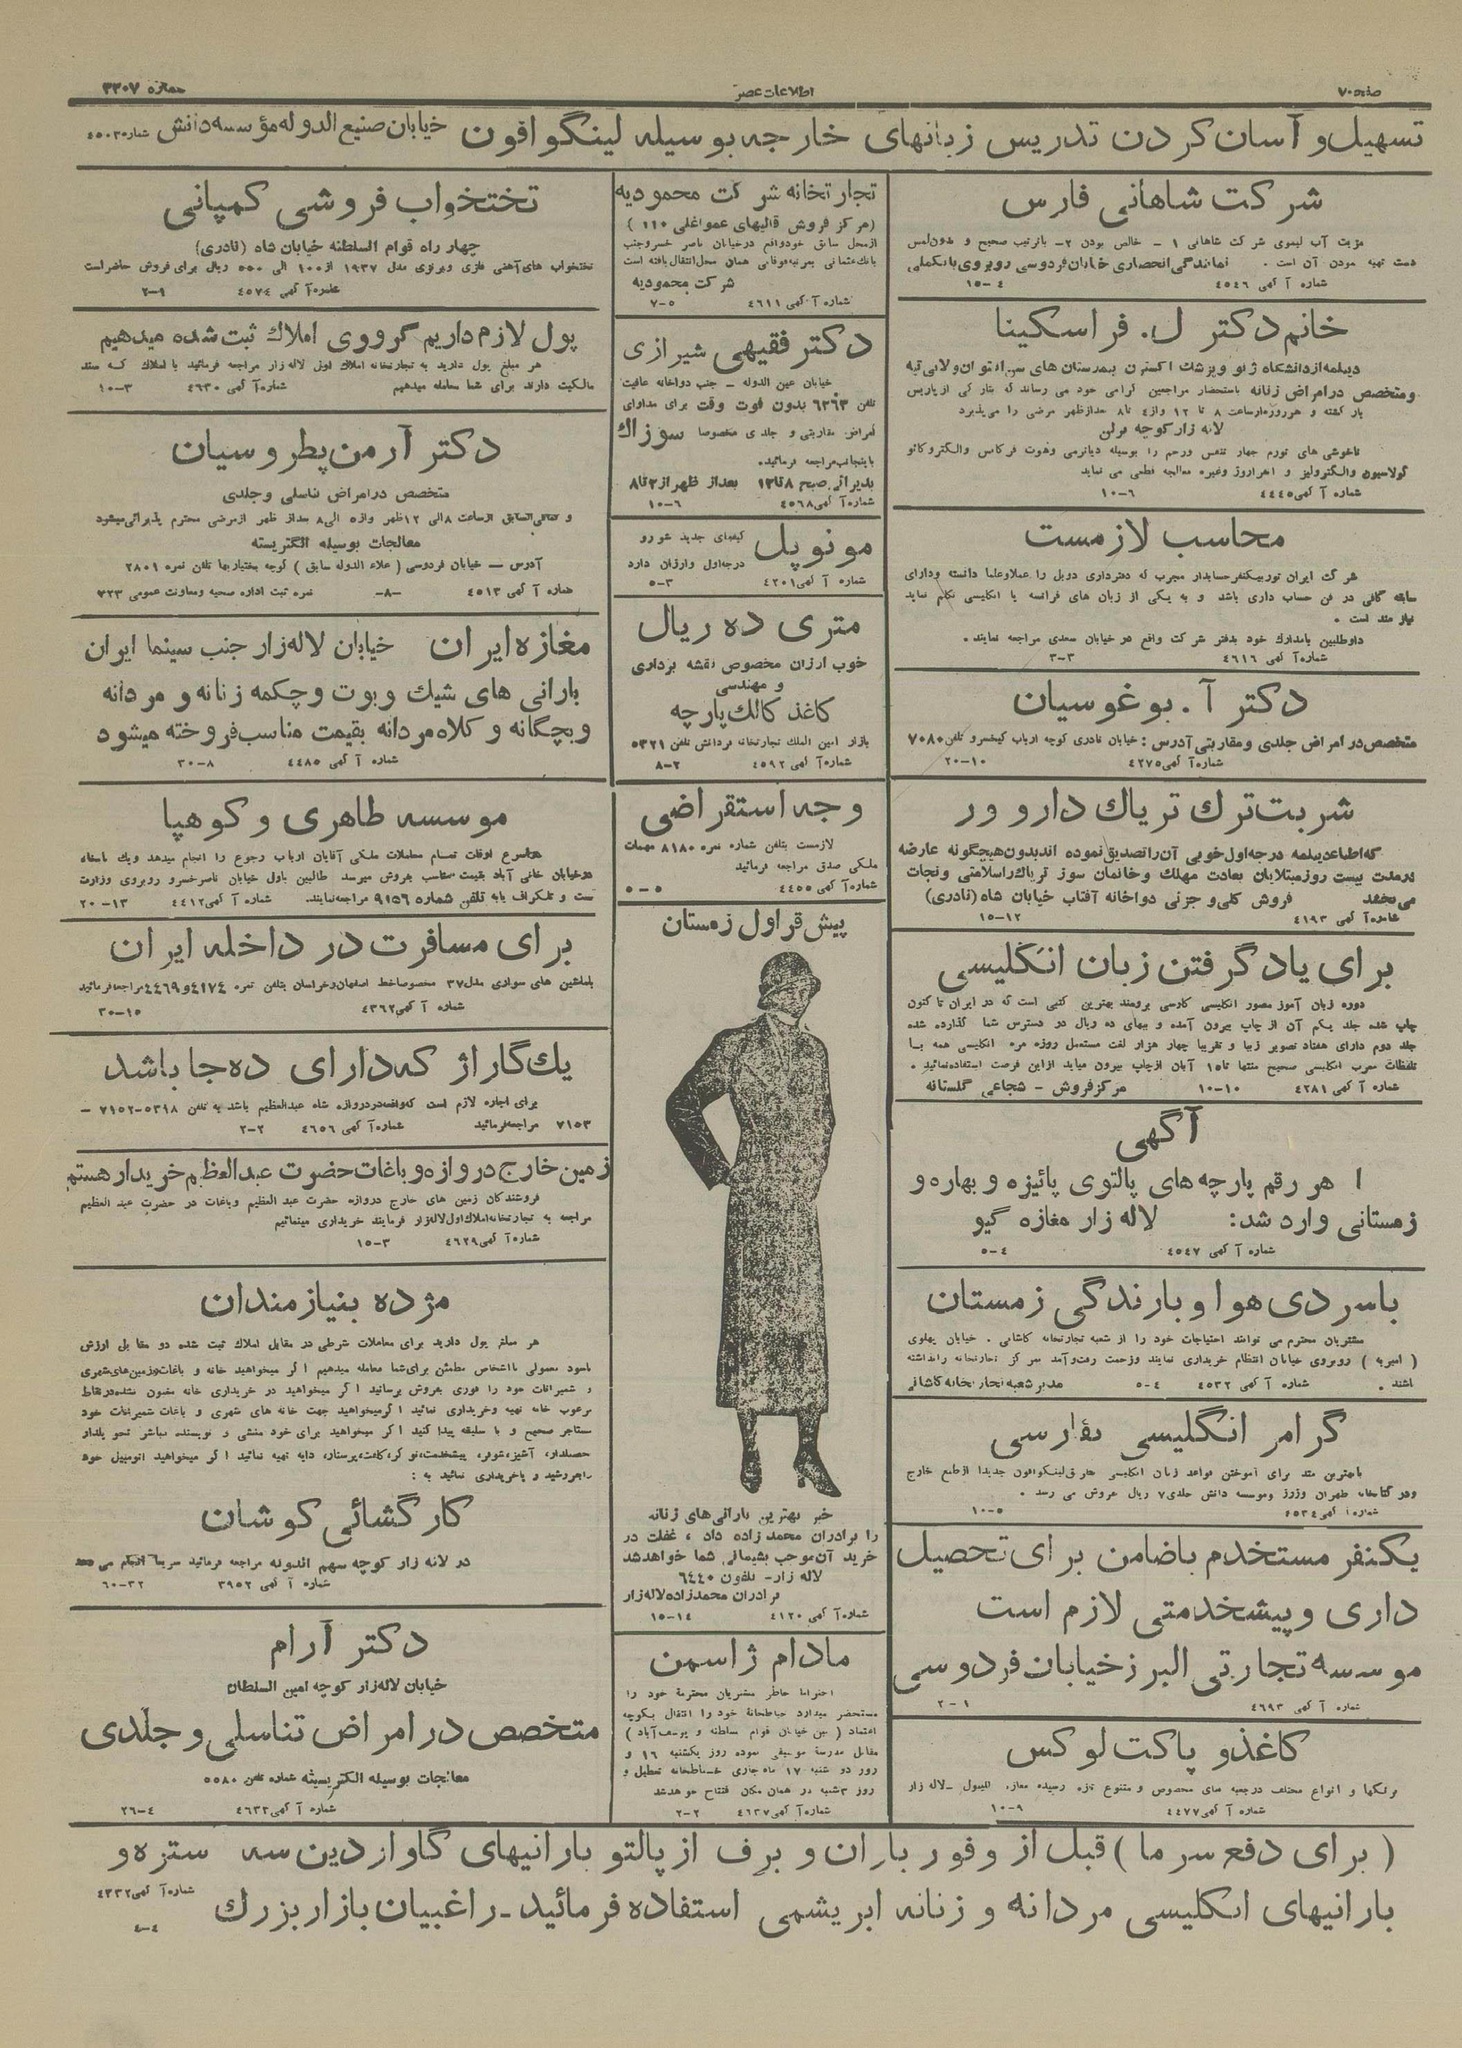 صفحه ۷
اطلاعات عصر
شماره ۳۳۰۷
تسهیل و آسان کردن تدریس زبانهای خارجه بوسیله لینگوافون خیابان صنیع الدوله مؤسسه دانش شماره ۴۵۰۳
شرکت شاهانی فارس
مزیت آب لیموی شرکت شاهانی ۱ - خالص بودن ۲- باترتیب صحیح و بدون لمس
دست تهیه نمودن آن است . نمایندگی انحصاری خیابان فردوسی روبروی بانک ملی
شماره آگهی ۴۵۴۶ ۴-۱۵
خانم دکتر ل. فراسکینا
و متخصص در امراض زنانه باستحضار مراجعین گرامی خود می رساند که بتازگی از پاریس
بازگشته و هر روزه از ساعت ۸ تا ۱۲ و از ۴ تا ۸ بعدازظهر مرضی را می پذیرد
لاله زار کوچه برلن
شماره آگهی ۴۴۴۵ ۶-۱۰
محاسب لازمست
شرکت ایران توریک نفر حسابدار مجرب که دفترداری دوبل را عملا و علما دانسته و دارای
سابقه کافی در فن حساب داری باشد و به یکی از زبان های فرانسه یا انگلیسی تکلم نماید
نیاز مند است .
داوطلبین بامدارک خود بدفتر شرکت واقع در خیابان سعدی مراجعه نمایند.
شماره آگهی ۴۶۱۶ ۳-۳
دکتر آ. بوغوسیان
متخصص در امراض جلدی و مقاربتی آدرس: خیابان نادری کوچه ارباب کیخسرو تلفن ۷۰۸۰
شماره آگهی ۴۲۷۵ ۱۰-۲۰
شربت ترک تریاک دارو ور
که اطباء دیپلمه درجه اول خوبی آن را تصدیق نموده اند بدون هیچگونه عارضه
در مدت بیست روز مبتلایان بعادت مهلک و خانمان سوز تریاک را سلامتی و نجات
می بخشد فروش کلی و جزئی دواخانه آفتاب خیابان شاه (نادری)
شماره آگهی ۴۱۹۳ ۱۲-۱۵
برای یاد گرفتن زبان انگلیسی
دوره زبان آموز مصور انگلیسی فارسی برومند بهترین کتبی است که در ایران تا کنون
چاپ شده جلد یکم آن از چاپ بیرون آمده و ببهای ده ریال در دسترس شما گذارده شده
جلد دوم دارای هفتاد تصویر زیبا و تقریبا چهار هزار لغت مستعمل روزه مره انگلیسی همه با
تلفظات معرب انگلیسی صحیح منتها تا ۱۵ آبان از چاپ بیرون میاید از این فرصت استفاده نمائید .
شماره آگهی ۴۲۸۱ ۱۰-۱۰ مرکز فروش - شجاعی گلستانه
آگهی
۱ هر رقم پارچه های پالتوی پائیزه و بهاره و
زمستانی وارد شد: لاله زار مغازه گیو
شماره آگهی ۴۵۴۷ ۴-۵
با سردی هوا و بارندگی زمستان
مشتریان محترم می توانند احتیاجات خود را از شعبه تجارتخانه کاشانی . خیابان پهلوی
( امیریه ) روبروی خیابان انتظام خریداری نمایند و زحمت رفت و آمد بمرکز تجارتخانه را نداشته
باشند . شماره آگهی ۴۵۳۲ ۴-۵ مدیر شعبه تجارتخانه کاشانی
گرامر انگلیسی بفارسی
ودر کتابخانه طهران وزرز وموسسه دانش جلدی ۷ ریال بفروش می رسد .
شماره آگهی ۴۵۳۴ ۵-۱۰
یکنفر مستخدم با ضامن برای تحصیل
داری و پیشخدمتی لازم است
موسسه تجارتی البرز خیابان فردوسی
شماره آگهی ۴۶۹۳ ۱-۲
کاغذ و پاکت لوکس
شماره آگهی ۴۴۷۷ ۹-۱۰
تجارتخانه شرکت محمودیه
(مرکز فروش قالیهای عمواغلی ۱۱۰ )
از محل سابق خود واقع در خیابان ناصر خسرو جنب
بانک عثمانی بمرتبه فوقانی همان محل انتقال یافته است
شرکت محمودیه
شماره آگهی ۴۶۱۱ ۵-۷
دکتر فقیهی شیرازی
خیابان عین الدوله - جنب دواخانه عافیت
تلفن ۶۲۶۳ بدون فوت وقت برای مداوای
امراض مقاربتی و جلدی مخصوصا سوزاک
باینجانب مراجعه فرمائید.
پذیرائی صبح ۸ تا ۱۲ بعداز ظهر از ۳ تا ۸
شماره آگهی ۴۵۶۸ ۶-۱۰
مونوپل کیفهای جدید شورو
درجه اول و ارزان دارد
شماره آگهی ۴۲۰۱ ۳-۵
متری ده ریال
خوب ارزان مخصوص نقشه برداری
و مهندسی
کاغذ کالک پارچه
بازار امین الملک تجارتخانه فردانش تلفن ۵۳۲۱
شماره آگهی ۴۵۹۲ ۲-۸
وجه استقراضی
لازمست بتلفن شماره نمره ۸۱۸۰ مهمات
ملکی صدق مراجعه فرمائید
شماره آگهی ۴۴۵۵ ۵-۵
پیش قراول زمستان
خبر بهترین بارانی های زنانه
را برادران محمدزاده داد ، غفلت در
خرید آن موجب پشیمانی شما خواهد شد
لاله زار- تلفون ۶۴۴۰
برادران محمدزاده لاله زار
شماره آگهی ۴۱۲۰ ۱۴-۱۵
مادام ژاسمن
احتراما خاطر مشتریان محترمه خود را
مستحضر میدارد خیاطخانه خود را انتقال بکوچه
اعتماد ( بین خیابان قوام سلطنه و یوسف آباد )
مقابل مدرسه موسیقی نموده روز یکشنبه ۱۶ و
روز دو شنبه ۱۷ ماه جاری خیاطخانه تعطیل و
روز ۳شنبه در همان مکان افتتاح خواهد شد
شماره آگهی ۴۶۳۷ ۲-۲
تختخواب فروشی کمپانی
چهار راه قوام السلطنه خیابان شاه (نادری)
تختخواب های آهنی فلزی و برنزی مدل ۱۹۳۷ از ۱۰۰ الی ۵۵۰ ریال برای فروش حاضر است
شماره آگهی ۴۵۷۴ ۹-۲
پول لازم داریم گرووی املاک ثبت شده میدهیم
هر مبلغ پول دارید به تجارتخانه املاک اول لاله زار مراجعه فرمائید با املاک که سند
مالکیت دارند برای شما معامله میدهیم شماره آگهی ۴۶۳۰ ۳-۱۰
دکتر آرمن پطروسیان
متخصص در امراض تناسلی و جلدی
و کمافی السابق از ساعت ۸ الی ۱۲ ظهر و از ۵ الی ۸ بعداز ظهر از مرضی محترم پذیرائی میشود
معالجات بوسیله الکتریسته
آدرس - خیابان فردوسی ( علاء الدوله سابق ) کوچه بختیاریها تلفن نمره ۲۸۰۱
شماره آگهی ۴۵۱۳ -۸- نمره ثبت اداره صحیه و معاونت عمومی ۷۲۳
مغازه ایران خیابان لاله زار جنب سینما ایران
بارانی های شیک و بوت و چکمه زنانه و مردانه
و بچگانه و کلاه مردانه بقیمت مناسب فروخته میشود
شماره آگهی ۴۴۸۵ ۸-۳۰
موسسه طاهری و کوهپا
در خیابان خانی آباد بقیمت مناسب بفروش میرسد طالبین باول خیابان ناصر خسرو روبروی وزارت
پست و تلگراف یا به تلفن شماره ۹۱۵۶ مراجعه نمایند. شماره آگهی ۴۴۱۲ ۱۳-۲۰
برای مسافرت در داخله ایران
باماشین های سواری مدل ۳۷ مخصوصا خط اصفهان و خراسان بتلفن نمره ۴۱۷۴ و ۴۴۶۹ مراجعه فرمائید
شماره آگهی ۴۳۶۲ ۱۵-۳۰
یک گاراژ که دارای ده جا باشد
برای اجاره لازم است که واقعه در دروازه شاه عبدالعظیم باشد به تلفن ۵۳۱۸-۷۱۵۲ -
۷۱۵۳ مراجعه فرمائید شماره آگهی ۴۶۵۶ ۲-۲
زمین خارج دروازه و باغات حضرت عبدالعظیم خریدار هستم
فروشندگان زمین های خارج دروازه حضرت عبد العظیم و باغات در حضرت عبد العظیم
مراجعه به تجارتخانه املاک اول لاله زار فرمایند خریداری مینمائیم
شماره آگهی ۴۶۲۹ ۳-۱۵
مژده بنیازمندان
هر مبلغ پول دارید برای معاملات شرطی در مقابل املاک ثبت شده دو مقابل ارزش
باسود معمولی بااشخاص مطمئن برای شما معامله میدهیم اگر میخواهید خانه و باغات و زمین های شهری
و شمیرانات خود را فوری بفروش برسانید اگر میخواهید در خریداری خانه مغبون نشده در نقاط
مرغوب خانه تهیه و خریداری نمائید اگر میخواهید جهت خانه های شهری و باغات شمیرانات خود
مستاجر صحیح و با سلیقه پیدا کنید اگر میخواهید برای خود منشی و نویسنده مباشر تحویلدار
تحصلدار، آشپز، شوفر، پیشخدمت، نوکر، کلفت، پرستار، دایه تهیه نمائید اگر میخواهید اتومبیل خود
را بفروشید و یا خریداری نمائید به :
کارگشائی کوشان
در لاله زار کوچه سهم الدوله مراجعه فرمائید سریعا انجام می دهد
شماره آگهی ۳۹۵۲ ۳۲-۶۰
دکتر آرام
خیابان لاله زار کوچه امین السلطان
متخصص در امراض تناسلی و جلدی
معالجات بوسیله الکتریسیته شماره تلفن ۵۵۸۰
شماره آگهی ۴۶۳۲ ۴-۲۶
( برای دفع سرما ) قبل از وفور باران و برف از پالتو بارانیهای گاواردین سه ستزه و
بارانیهای انگلیسی مردانه و زنانه ابریشمی استفاده فرمائید - راغبیان بازار بزرگ
شماره آگهی ۴۳۳۲
۴-۴